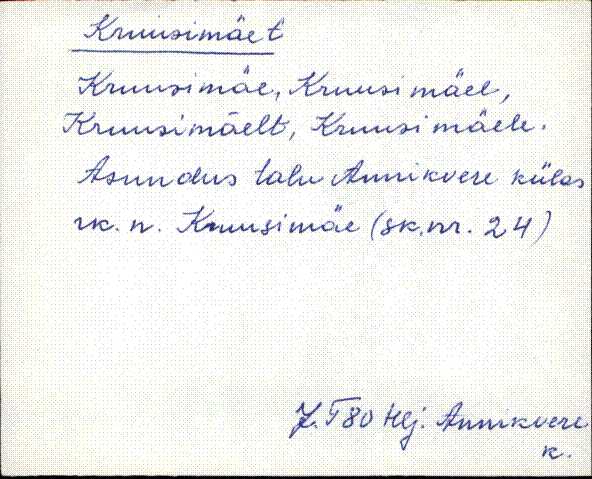 Kruusimäet
Kruusimäe, Kruusimäel,
Kruusimäelt, Kruusimäele.
Asundus talu Annikvere külas
rk. n. Kruusimäe (sk. nr. 24)
80 Hlj. Annikvere
k.